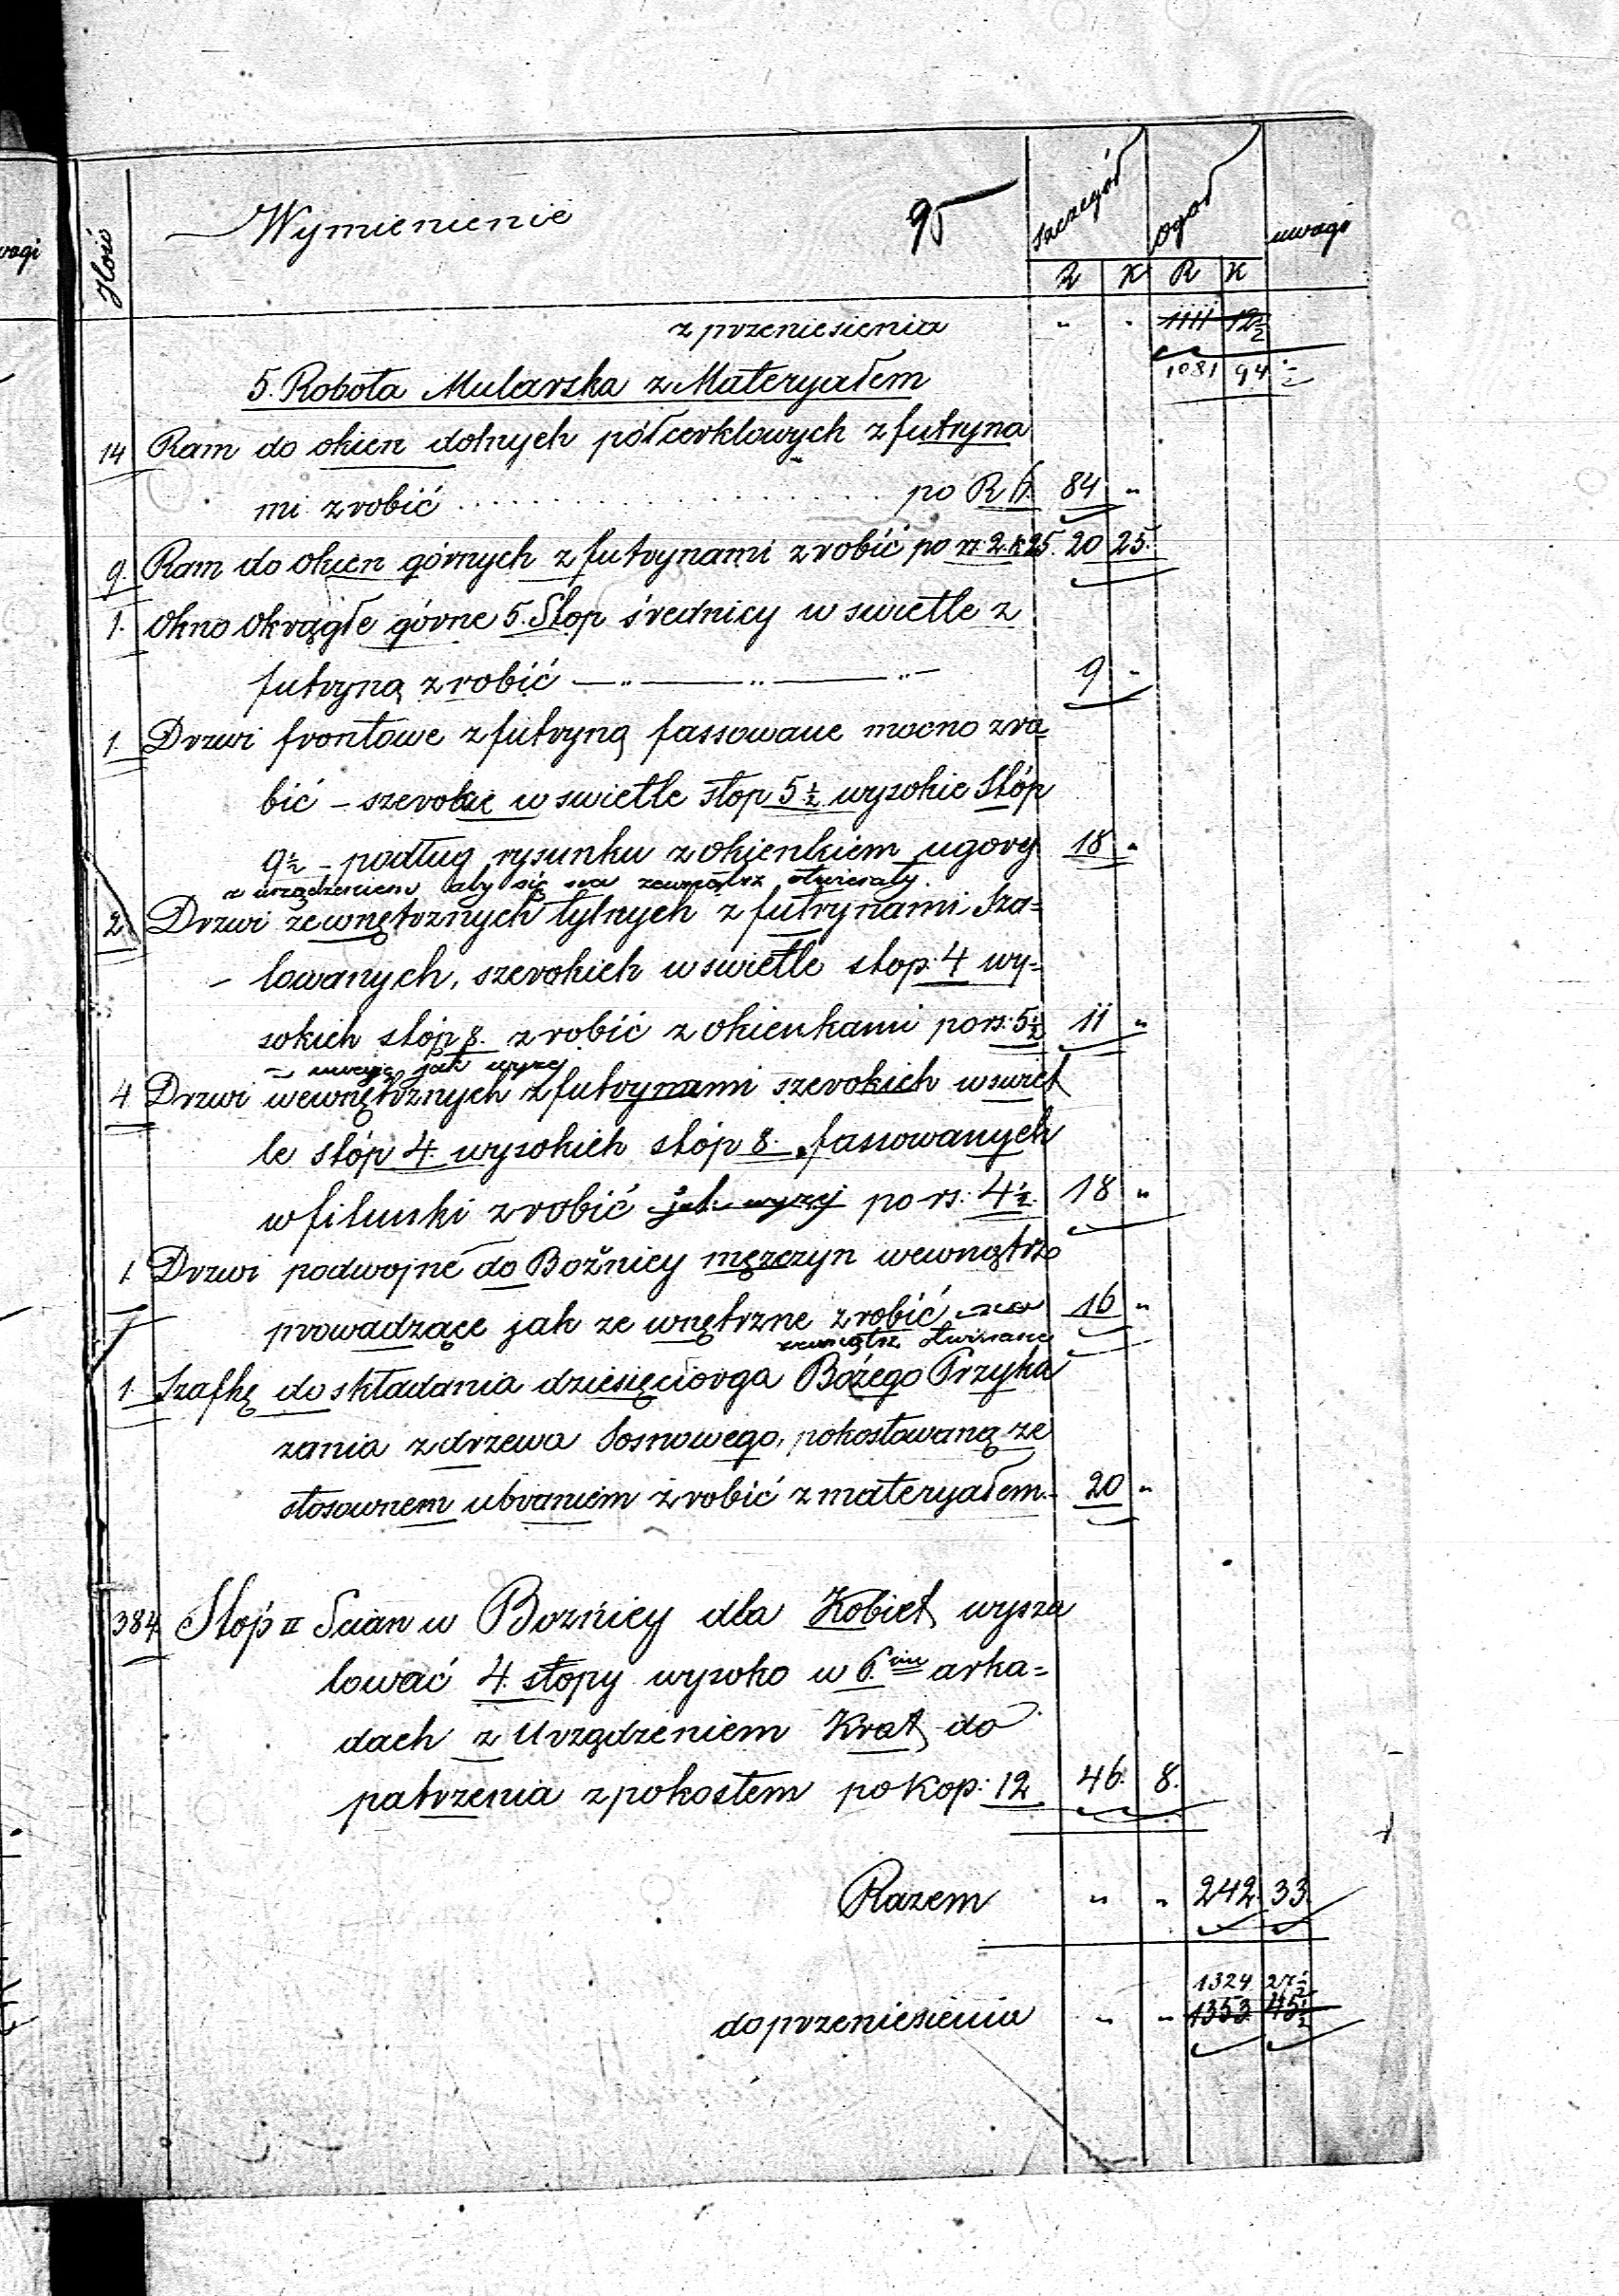 Ilość Wymienienie 95 szczegół ogół uwagi
R K R K
z przeniesienia " " 1111 12½
1081 94½
5. Robota Mularska z Materyałem
14 Ram do okien dolnych półcerklowych z futryna
mi zrobić . . . . . po R 6. 84 "
9. Ram do okien górnych z futrynami zrobić po rs: 2. k 25. 20 25.
1. Okno Okrągłe górne 5. Stop średnicy w swietle z
futryną zrobić — " — " — " — 9 "
1. Drzwi frontowe z futryną fassowane mocno zro
bić – szerokie w swietle stop 5½ wysokie Stóp
9½ – podług rysunku z okienkiem ugory 18 "
z urządzeniem aby się na zewnątrz otwierały.
2 Drzwi zewnętrznych tylnych z futrynami Sza=
– lowanych, szerokich w swietle stop 4 wy=
sokich stóp 8. zrobić z okienkami po rs: 5½ 11 "
– uwaga jak wyzej
4 Drzwi wewnętrznych z futrynami szerokich w swiet
le stóp 4. wysokich stóp 8. fassowanych
w filunki zrobić jak wyzej po rs: 4½. 18 "
1. Drzwi podwojne do Bożnicy męzczyn wewnątrz
prowadzące jak ze wnętrzne zrobić na 16 "
zewnątrz otwierane
1 Szafkę do składania dziesięciorga Bożego Przyka
zania z drzewa Sosnowego, pokostowaną ze
stosownem ubraniem zrobić z materyałem. 20 "
384 Stóp □ Scian w Boznicy dla Kobiet wysza
lować 4. stopy wysoko w 6.ciu arka=
dach z Urządzeniem Krat do
patrzenia z pokostem po Kop: 12 46. 8.
Razem " " 242. 33.
1324 27½
do przeniesienia " " 1353 45½